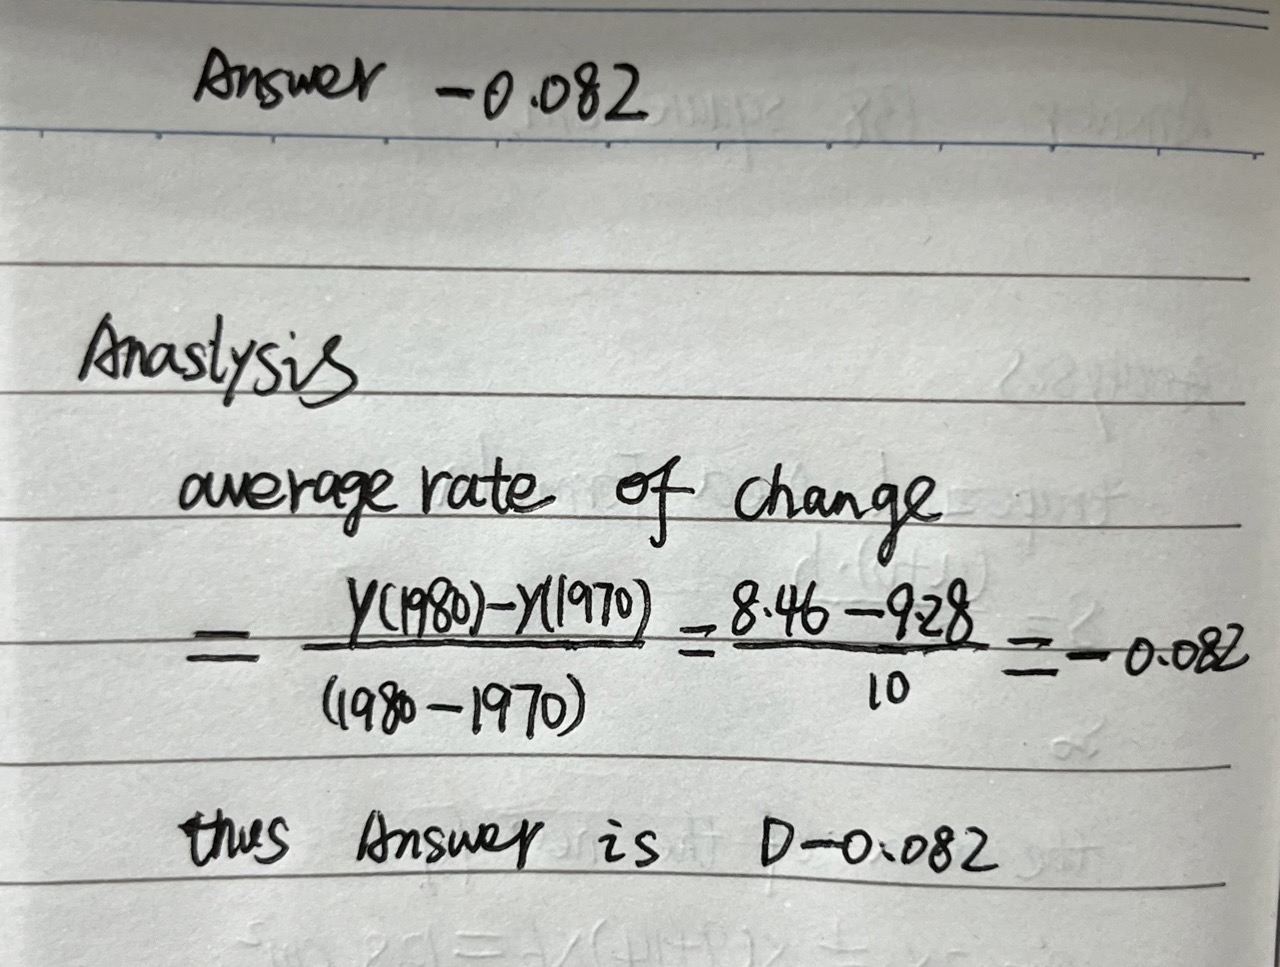 Answer -0.082
Anaslysis
average rate of change
= y(1980)-y(1970) / (1980-1970) = 8.46-9.28 / 10 = -0.082
thus Answer is D-0.082